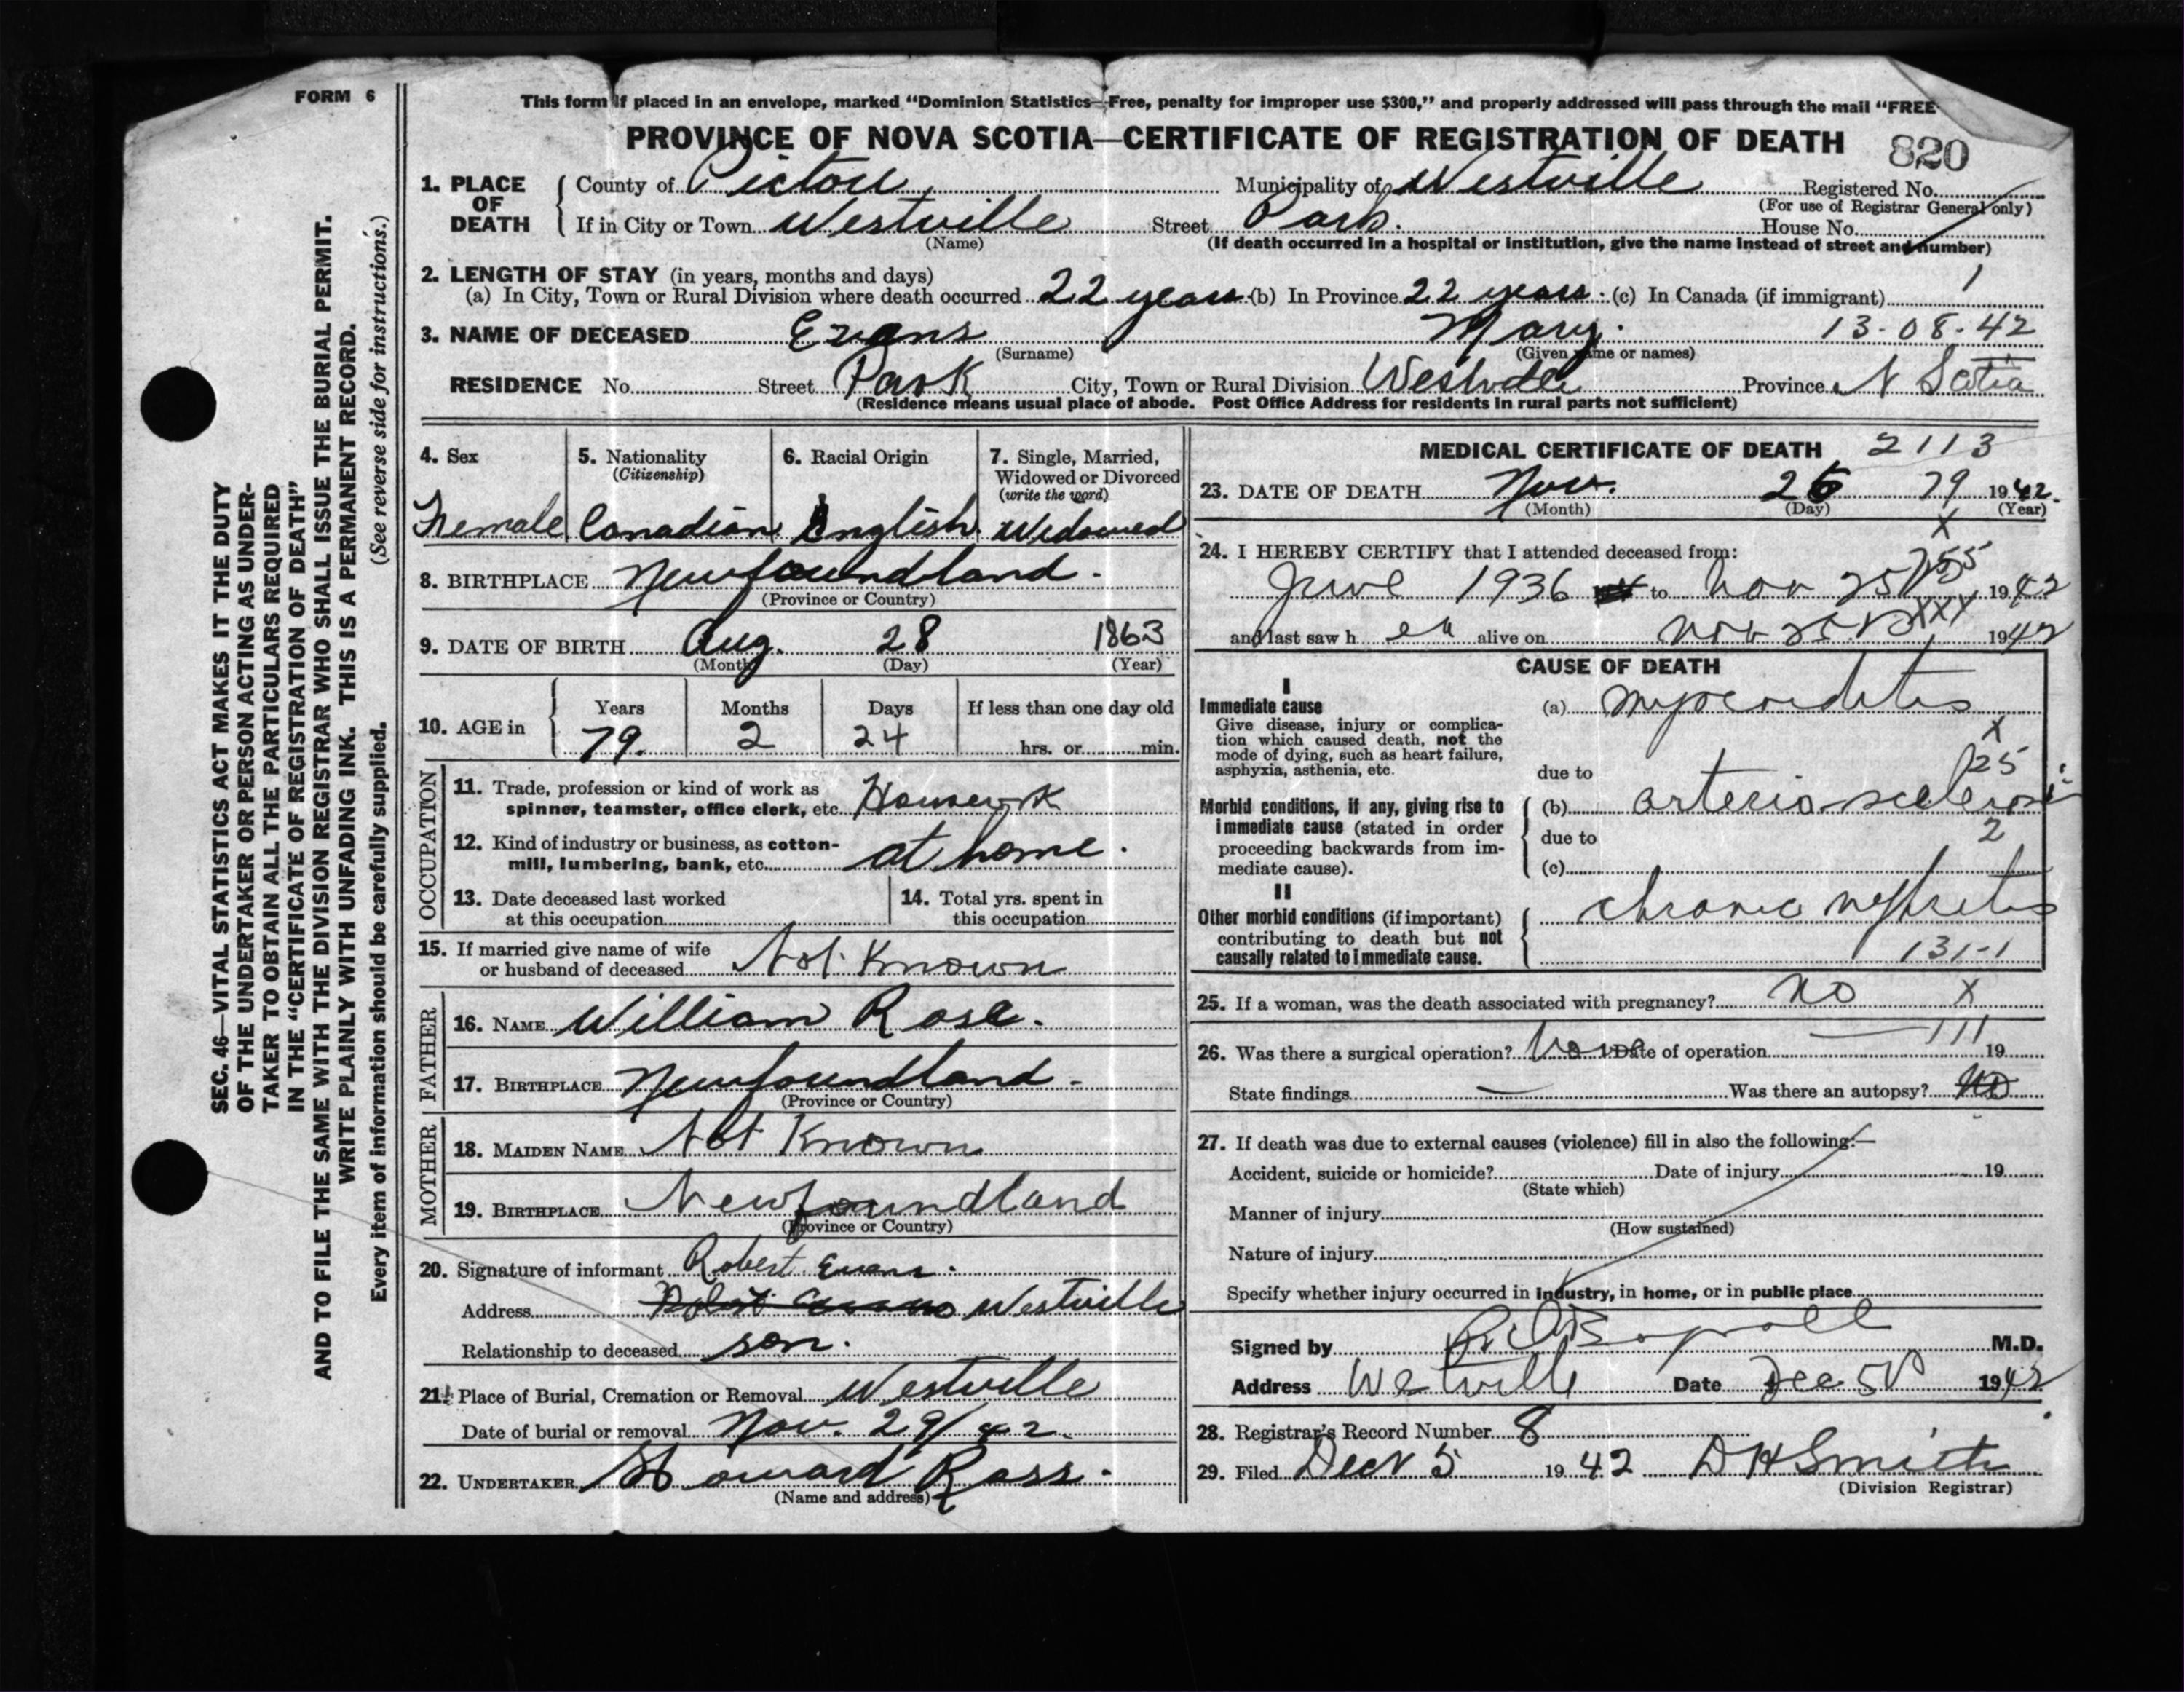 FORM 6
This form if placed in an envelope, marked “Dominion Statistics—Free, penalty for improper use $300,” and properly addressed will pass through the mail “FREE
PROVINCE OF NOVA SCOTIA—CERTIFICATE OF REGISTRATION OF DEATH 820
1. PLACE OF DEATH { County of Pictou, Municipality of Westville Registered No.
(For use of Registrar General only)
If in City or Town Westville Street Park. House No.
(Name) (If death occurred in a hospital or institution, give the name instead of street and number)
2. LENGTH OF STAY (in years, months and days) 1
(a) In City, Town or Rural Division where death occurred 22 years (b) In Province 22 years. (c) In Canada (if immigrant)
3. NAME OF DECEASED Evans Mary. 13-08-42
(Surname) (Given name or names)
RESIDENCE No. Street Park City, Town or Rural Division Westville Province N Scotia
(Residence means usual place of abode. Post Office Address for residents in rural parts not sufficient)
SEC. 46—VITAL STATISTICS ACT MAKES IT THE DUTY
OF THE UNDERTAKER OR PERSON ACTING AS UNDER-
TAKER TO OBTAIN ALL THE PARTICULARS REQUIRED
IN THE “CERTIFICATE OF REGISTRATION OF DEATH”
AND TO FILE THE SAME WITH THE DIVISION REGISTRAR WHO SHALL ISSUE THE BURIAL PERMIT.
WRITE PLAINLY WITH UNFADING INK. THIS IS A PERMANENT RECORD.
Every item of information should be carefully supplied. (See reverse side for instructions.)
4. Sex
Female
5. Nationality
(Citizenship)
Canadian
6. Racial Origin
English
7. Single, Married,
Widowed or Divorced
(write the word)
Widowed
8. BIRTHPLACE Newfoundland.
(Province or Country)
9. DATE OF BIRTH Aug. 28 1863
(Month) (Day) (Year)
10. AGE in { Years Months Days If less than one day old
79. 2 24 hrs. or min.
OCCUPATION
11. Trade, profession or kind of work as
spinner, teamster, office clerk, etc. Housework
12. Kind of industry or business, as cotton-
mill, lumbering, bank, etc. at home.
13. Date deceased last worked
at this occupation
14. Total yrs. spent in
this occupation
15. If married give name of wife
or husband of deceased Not Known
FATHER
16. NAME William Rose.
17. BIRTHPLACE Newfoundland.
(Province or Country)
MOTHER
18. MAIDEN NAME Not Known
19. BIRTHPLACE Newfoundland
(Province or Country)
20. Signature of informant Robert Evans.
Address Westville
Relationship to deceased son.
21. Place of Burial, Cremation or Removal Westville
Date of burial or removal Nov. 29/42.
22. UNDERTAKER Howard Ross.
(Name and address)
MEDICAL CERTIFICATE OF DEATH 2113
23. DATE OF DEATH Nov. 26 79 1942.
(Month) (Day) (Year)
X
24. I HEREBY CERTIFY that I attended deceased from:
June 1936 to Nov 25 1942
and last saw her alive on Nov XXX 1942
CAUSE OF DEATH
I
Immediate cause
Give disease, injury or complica-
tion which caused death, not the
mode of dying, such as heart failure,
asphyxia, asthenia, etc.
(a) myocarditis
X
due to 25
Morbid conditions, if any, giving rise to
immediate cause (stated in order
proceeding backwards from im-
mediate cause).
(b) arterio-sclerosis
due to 2
(c)
II
Other morbid conditions (if important)
contributing to death but not
causally related to immediate cause.
chronic nephritis
131-1
25. If a woman, was the death associated with pregnancy? no X
26. Was there a surgical operation? Date of operation 111 19
State findings — Was there an autopsy? no
27. If death was due to external causes (violence) fill in also the following:—
Accident, suicide or homicide? Date of injury 19
(State which)
Manner of injury
(How sustained)
Nature of injury
Specify whether injury occurred in industry, in home, or in public place
Signed by M.D.
Address Westville Date Dec 5 1942
28. Registrar's Record Number 8
29. Filed Dec 5 1942 D H Smith
(Division Registrar)